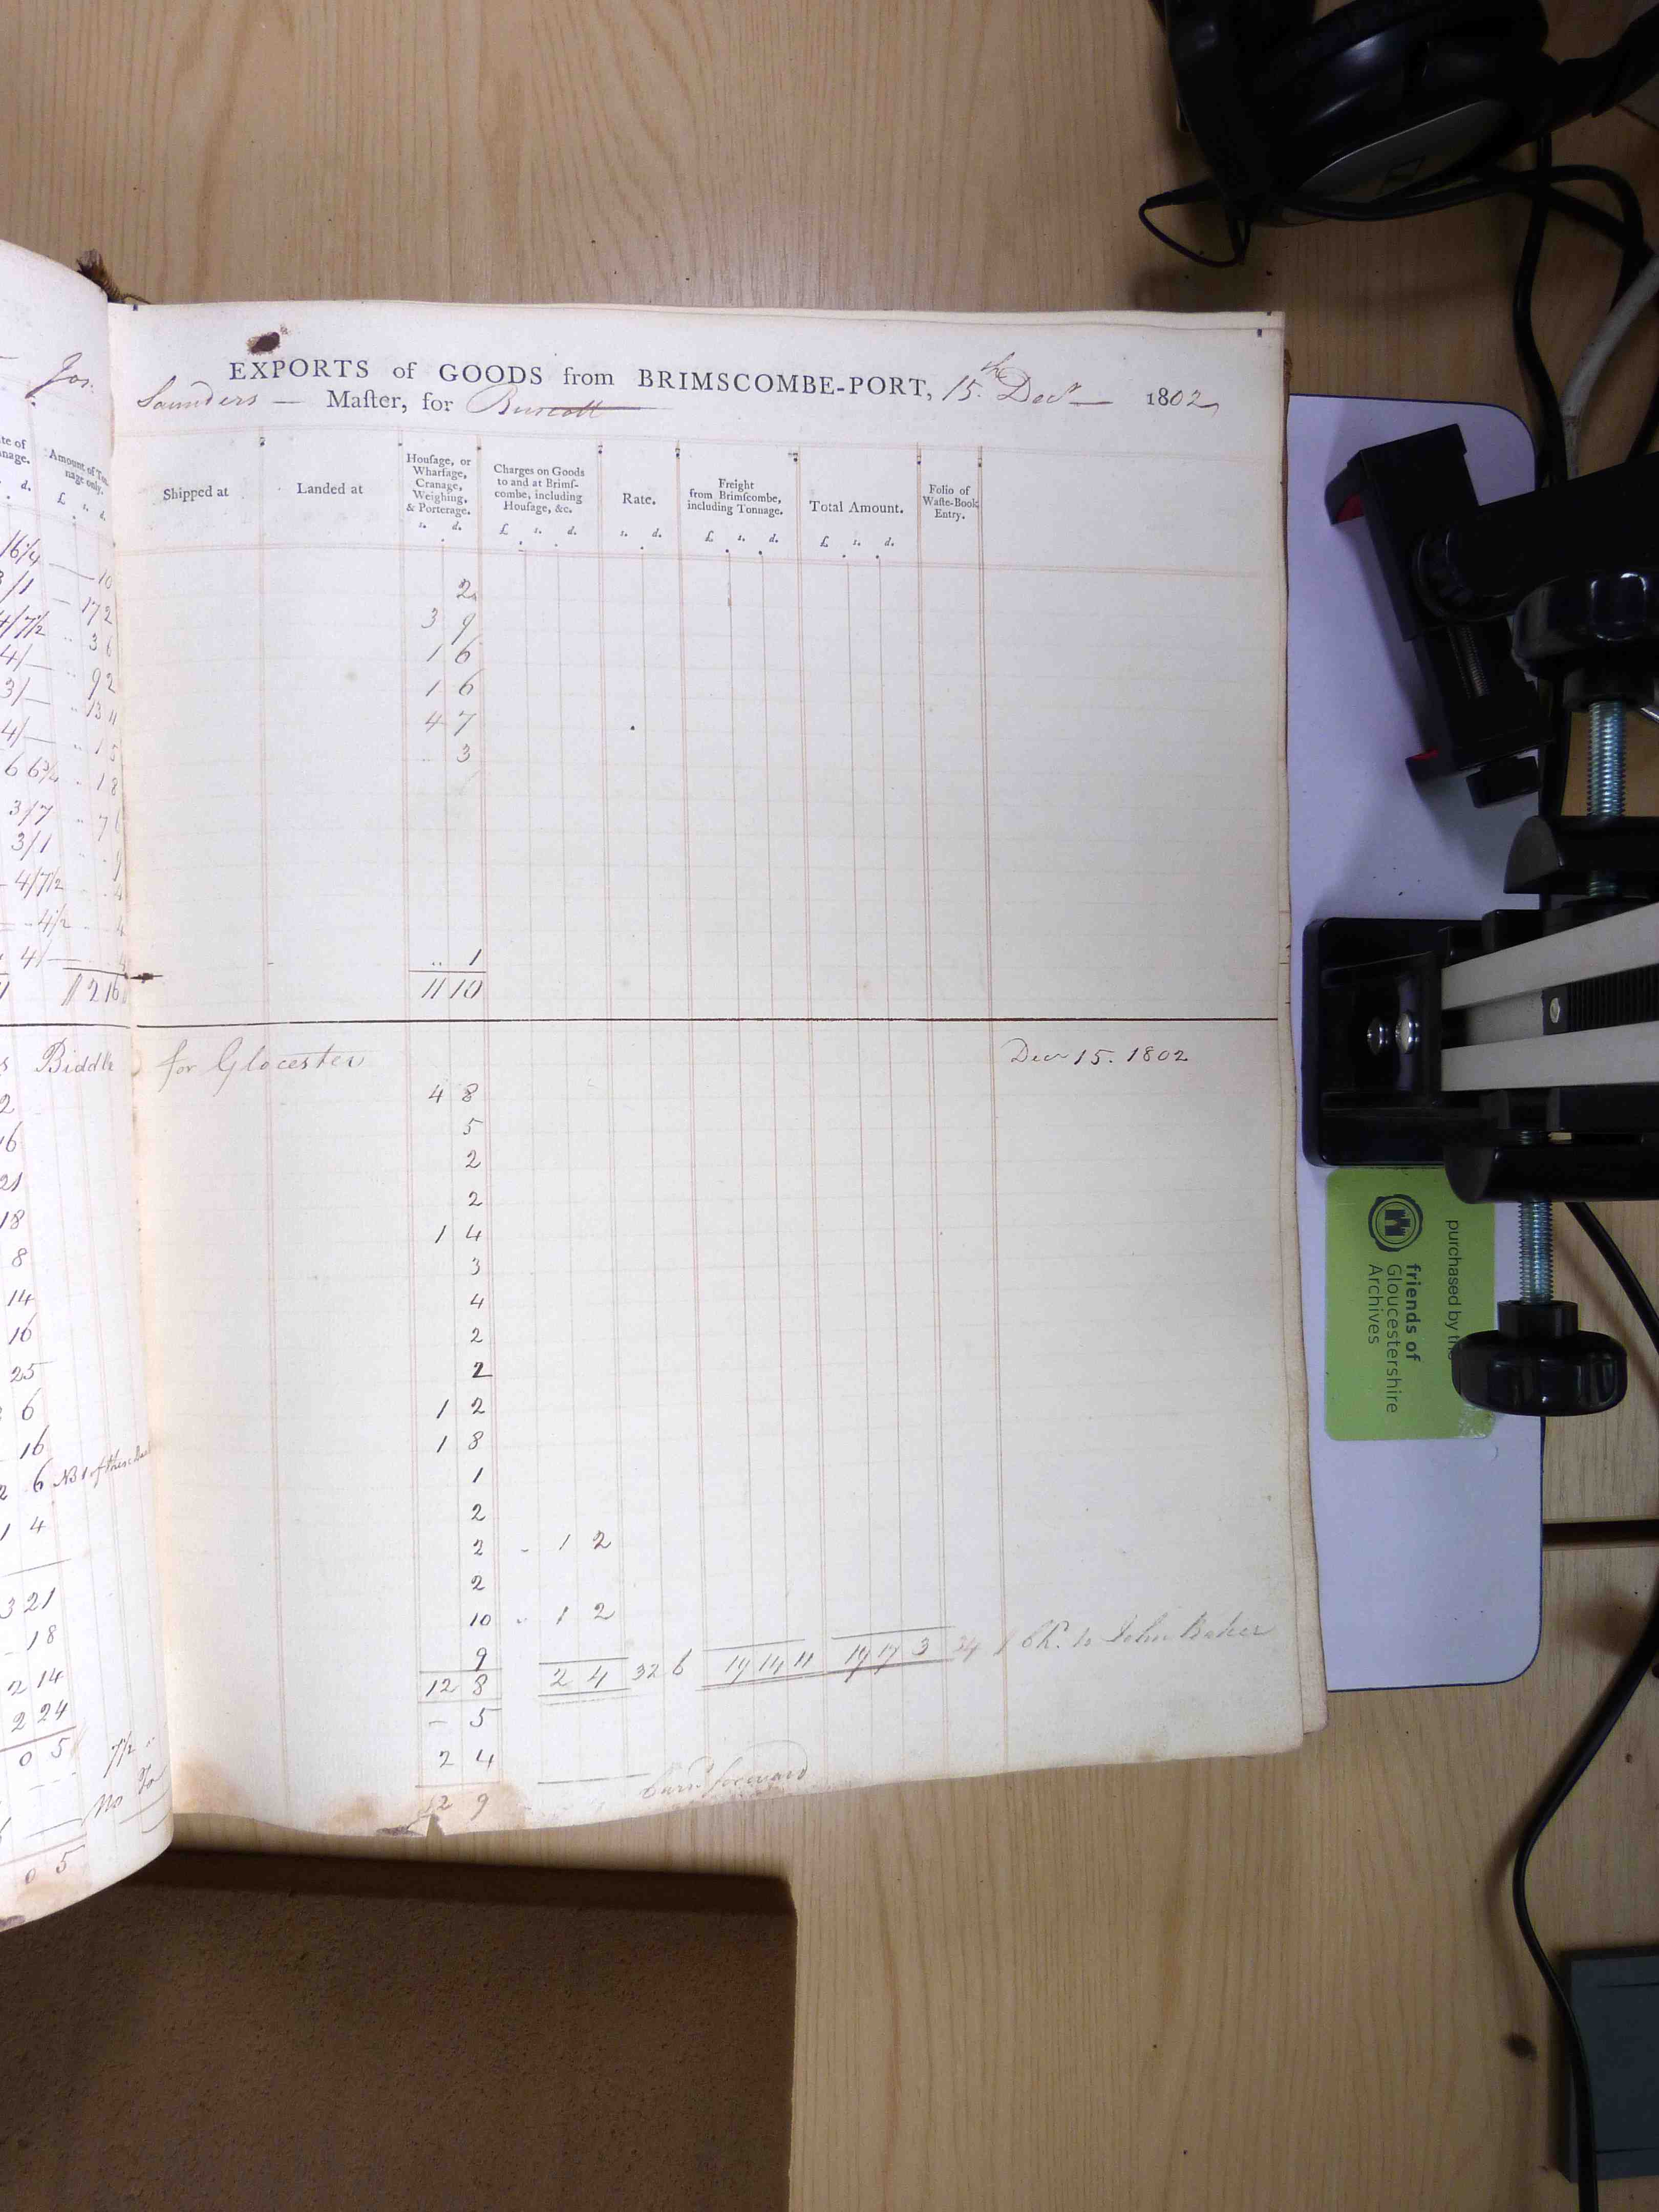 EXPORTS of GOODS from BRIMSCOMBE-PORT, 15th Decr 1802
Saunders — Maſter, for Buscott
Jos.
te of nage. d.
Amount of Ton- nage only. £ s. d.
Shipped at
Landed at
Houſage, or Wharfage, Cranage, Weighing, & Porterage. s. d.
Charges on Goods to and at Brimſ- combe, including Houſage, &c. £ s. d.
Rate. s. d.
Freight from Brimſcombe, including Tonnage. £ s. d.
Total Amount. £ s. d.
Folio of Waſte-Book Entry.
16¼ — 10
3/1 — 17 2
4/7½ .. 3 6
4/— .. 9 2
3/— .. 13 11
4/— .. 1 5
6 6¾ .. 1 8
3/7 .. 7
3/1
4/7½ .. 4
4½ .. 4
4/— 4
11 2 16
2
3 9
1 6
1 6
4 7
.. 3
.. 1
11 10
Biddle for Glocester
Decr 15. 1802
4 8
5
2
2
1 4
3
4
2
2
1 2
1 8
1
2
2 - 1 2
2
10 .. 1 2
9
12 8
2 4 32 6 19 14 11 19 17 3 34 1 Ch. to John Baker
– 5
2 4
12 9
Carrd forward
2
16
21
18
8
14
16
25
6
16
6 NB 1 of these
1 4
3 21
18
2 14
2 24
0 5
7½
No
0 5
purchased by the
friends of
Gloucestershire
Archives